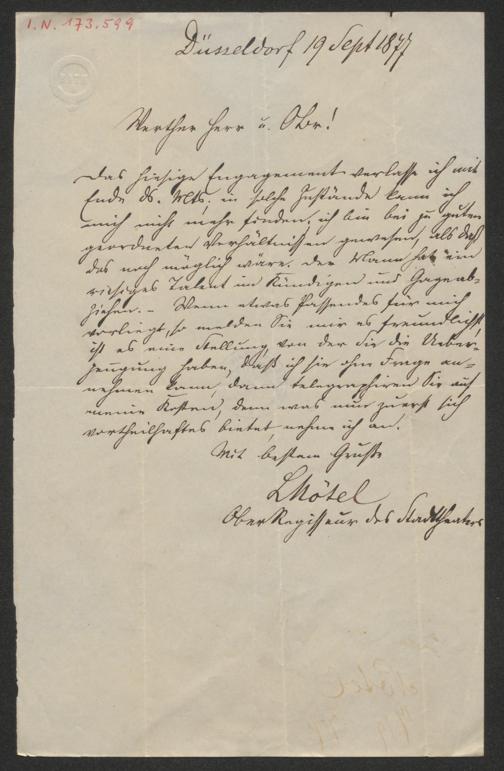 I.N. 173.599
Düsseldorf 19 Sept 1877
Werther Herr u. !
Das hiesige Engagement verlasse ich mit
Ende ds. Mts. in solche Zustände kann ich
mich nicht mehr finden, ich bin bei zu guten
geordneten Verhältnissen gewesen, als daß
das noch möglich wäre. Der Mann hat ein
riesiges Talent im Kündigen und Gageab-
ziehen. – Wenn etwas Passendes für mich
vorliegt, so melden Sie mir es freundlichst,
ist es eine Stellung von der Sie die Ueber-
zeugung haben, daß ich sie ohne Frage an-
nehmen kann, dann telegraphiren Sie auf
meine Kosten, denn was nun zuerst sich
vortheilhaftes bietet, nehme ich an.
Mit bestem Gruße
LNötel
OberRegisseur des Stadttheaters